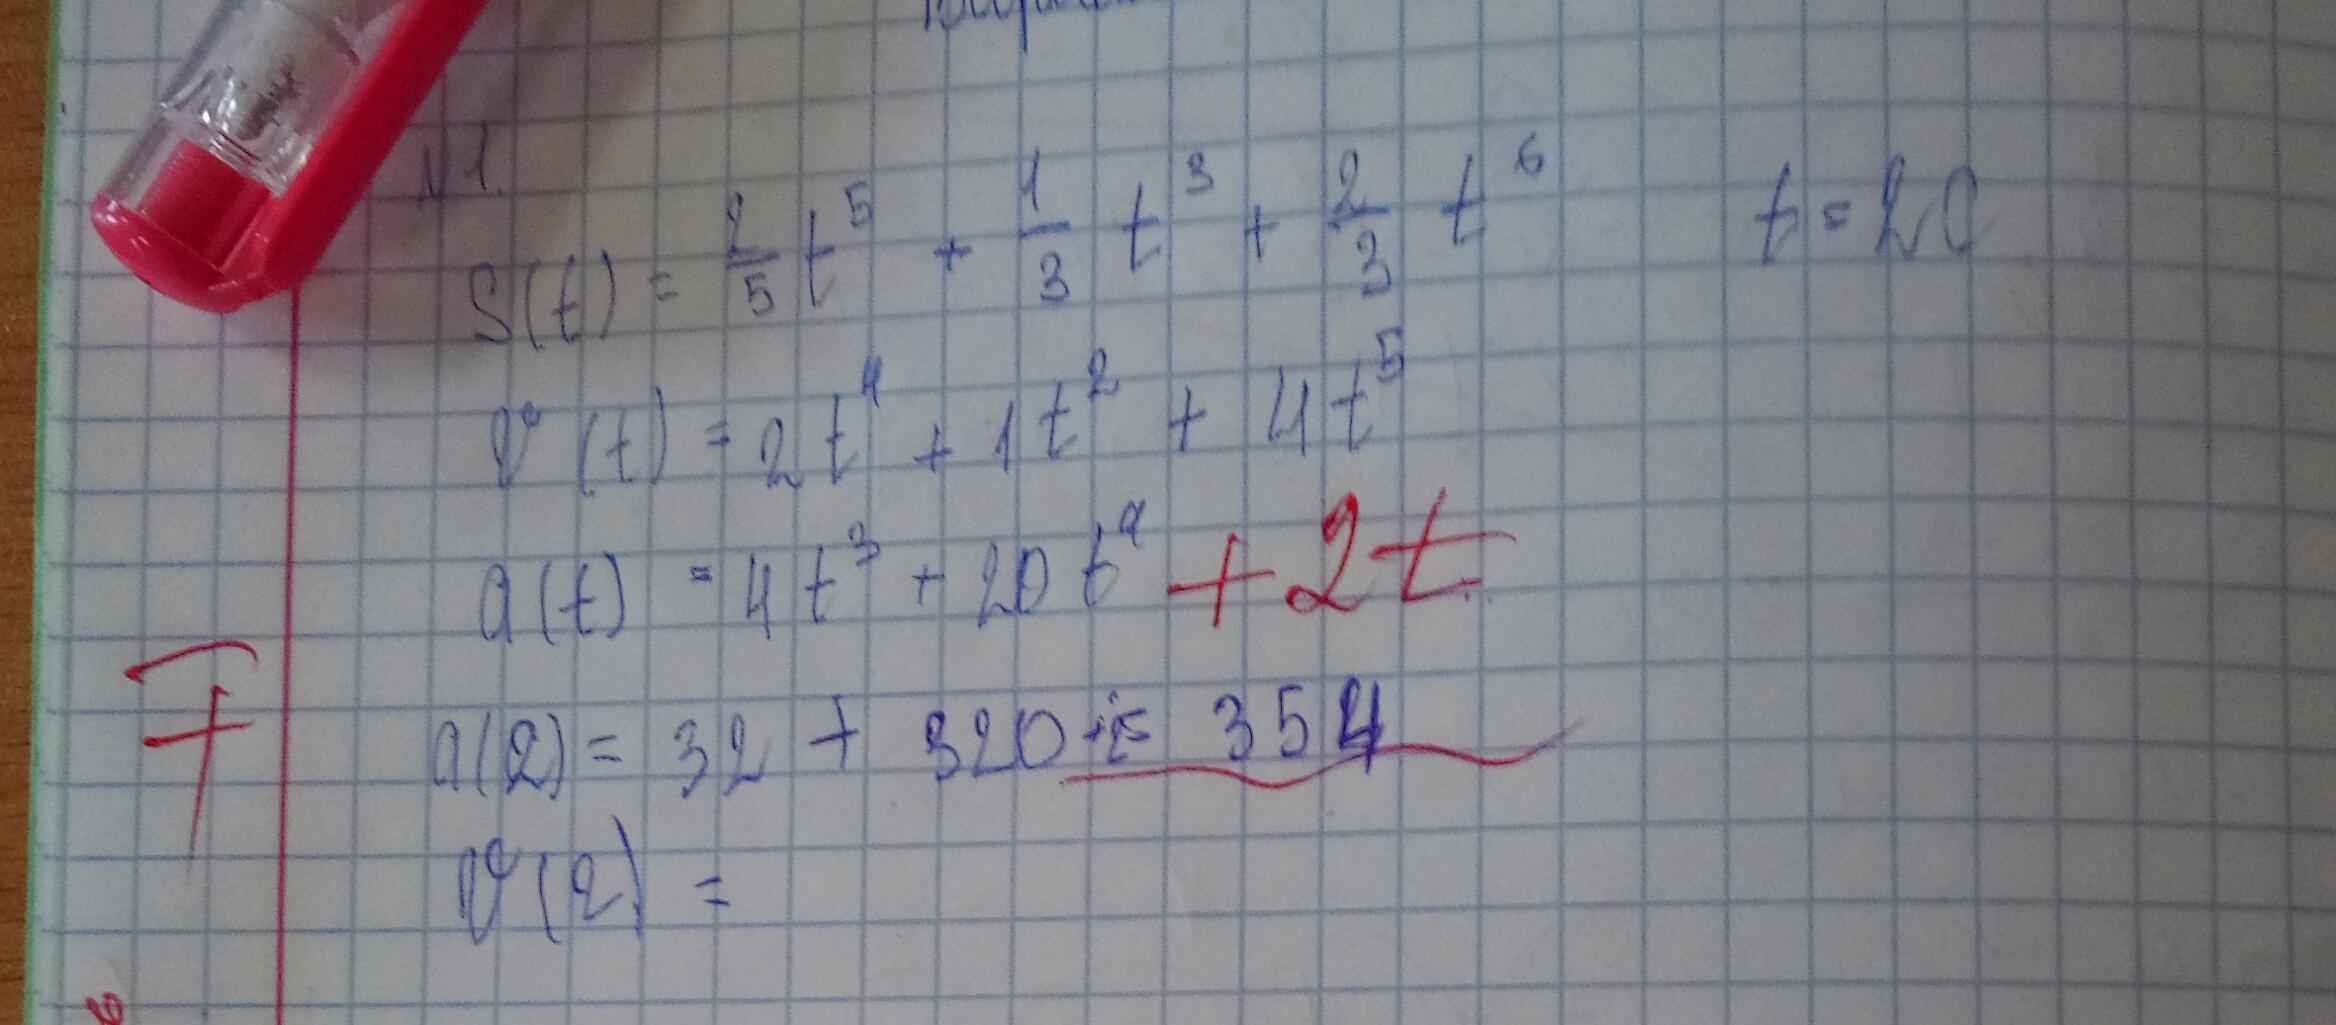 N 1.
S(t) = 2/5 t⁵ + 1/3 t³ + 2/3 t⁶ t = 2c
v(t) = 2t⁴ + 1t² + 4t⁵
a(t) = 4t³ + 20t⁴ + 2t
a(2) = 32 + 320 + 2 = 354
v(2) =